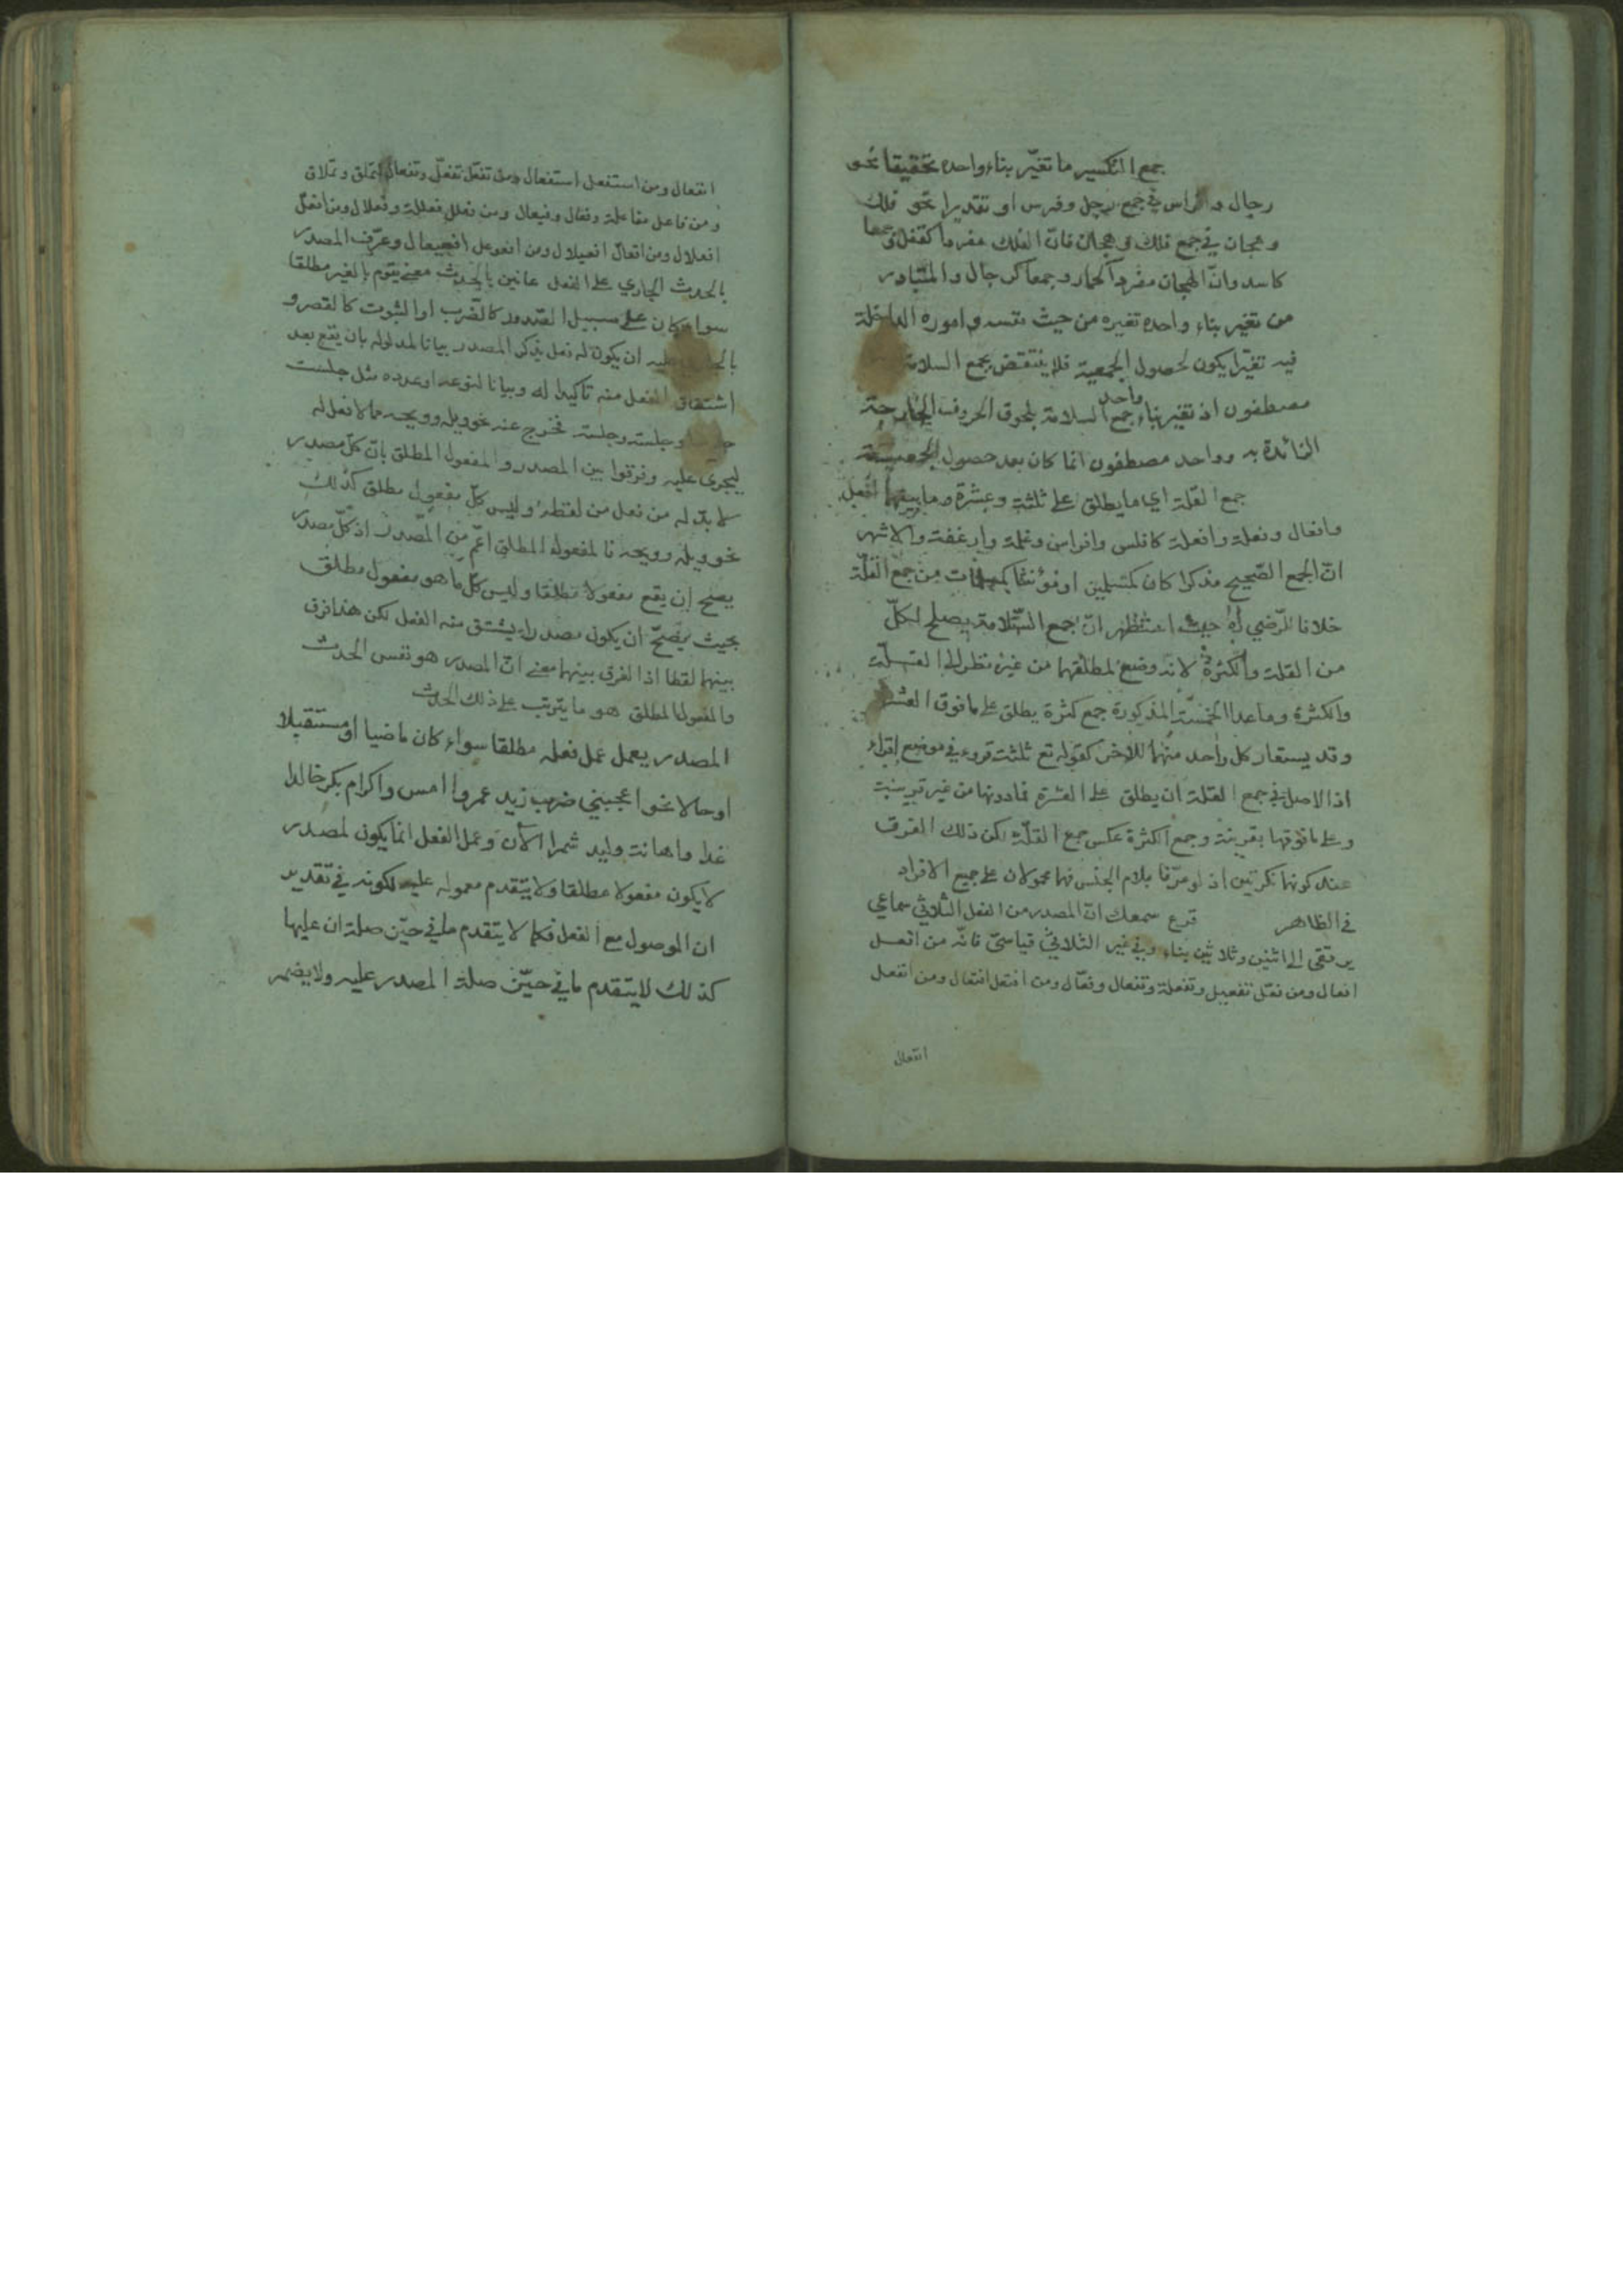 جمع التكسير ما تغيّر بناء واحده تحقيقا نحو
رجال وافراس في جمع رجل وفرس او تقديرا نحو فلك
وهجان في جمع فلك وهجان فانّ الفلك مفردا كقفل وجمعا
كاسد وانّ الهجان مفردا كحمار وجمعا كرجال والمتبادر
من تغير بناء واحده تغيره من حيث نفسه واموره الداخلة
فيه تغيّرا يكون لحصول الجمعية فلا ينتقض بجمع السلامة
مصطفون اذ تغير بناء واحد جمع السلامة بلحوق الحروف الخارجة
الزائدة به وواحد مصطفون انما كان بعد حصول الجمعية
جمع القلة اي ما يطلق على ثلثة وعشرة وما بينهما افعل
وافعال وفعلة وافعلة كافلس وافراس وغلمة وارغفة والاشهر
انّ الجمع الصّحيح مذكرا كان كمسلمين او مؤنثا كمسلمات من جمع القلّة
خلافا للرّضي ره حيث استظهر انّ جمع السّلامة يصلح لكلّ
من القلة والكثرة لانه وضع لمطلقهما من غير نظر الى القلّة
والكثرة وما عدا الخمسة المذكورة جمع كثرة يطلق على ما فوق العشرة
وقد يستعار كل واحد منهما للاخر كقوله تع ثلثة قروء في موضع اقراء
اذ الاصل في جمع القلة ان يطلق على العشرة فما دونها من غير قرينة
وعلى ما فوقها بقرينة وجمع الكثرة عكس جمع القلّة لكن ذلك الفرق
عند كونهما نكرتين اذ لو عرّفا بلام الجنس فهما محمولان على جميع الافراد
في الظاهر قرع سمعك انّ المصدر من الفعل الثلاثي سماعي
يرتقى الى اثنين وثلاثين بناء وفي غير الثلاثيّ قياسيّ فانّه من افعل
افعال ومن فعّل تفعيل وتفعلة وتفعال وفعّال ومن افتعل افتعال ومن انفعل
انفعال
انفعال ومن استفعل استفعال ومن تفعّل تفعّل وتفعّال كتملّق وتملّاق
ومن فاعل مفاعلة وفعال وفيعال ومن فعلل فعللة وفعلال ومن افعلّ
افعلال ومن افعالّ افعيلال ومن افعوعل افعيعال وعرّف المصدر
بالحدث الجاري على الفعل عانين بالحدث معنى يقوم بالغير مطلقا
سواء كان على سبيل الصّدور كالضّرب او الثبوت كالقصر و
عليه ان يكون له فعل يذكر المصدر بيانا لمدلوله بان يقع بعد
اشتقاق الفعل منه تاكيدا له وبيانا لنوعه او عدده مثل جلست
وجلسة وجلسة فخرج عنه نحو ويله وويحه مما لا فعل له
ليجرى عليه وفرقوا بين المصدر والمفعول المطلق بانّ كلّ مصدر
لا بدّ له من فعل من لفظه وليس كلّ مفعول مطلق كذلك
نحو ويله وويحه فالمفعول المطلق اعمّ من المصدر اذ كلّ مصدر
يصحّ ان يقع مفعولا مطلقا وليس كلّ ما هو مفعول مطلق
بحيث يصحّ ان يكون مصدرا يشتق منه الفعل لكن هذا فرق
بينهما لفظا اذ الفرق بينهما معنى انّ المصدر هو نفس الحدث
والمفعول المطلق هو ما يترتب على ذلك الحدث
المصدر يعمل عمل فعله مطلقا سواء كان ماضيا او مستقبلا
او حالا نحو اعجبني ضرب زيد عمروا امس واكرام بكر خالدا
غدا واهانة وليد شمرا الآن وعمل الفعل انما يكون لمصدر
لا يكون مفعولا مطلقا ولا يتقدم معموله عليه لكونه في تقدير
ان الموصول مع الفعل فكما لا يتقدم ما في حيّز صلة ان عليها
كذلك لا يتقدم ما في حيّز صلة المصدر عليه ولا يضمر